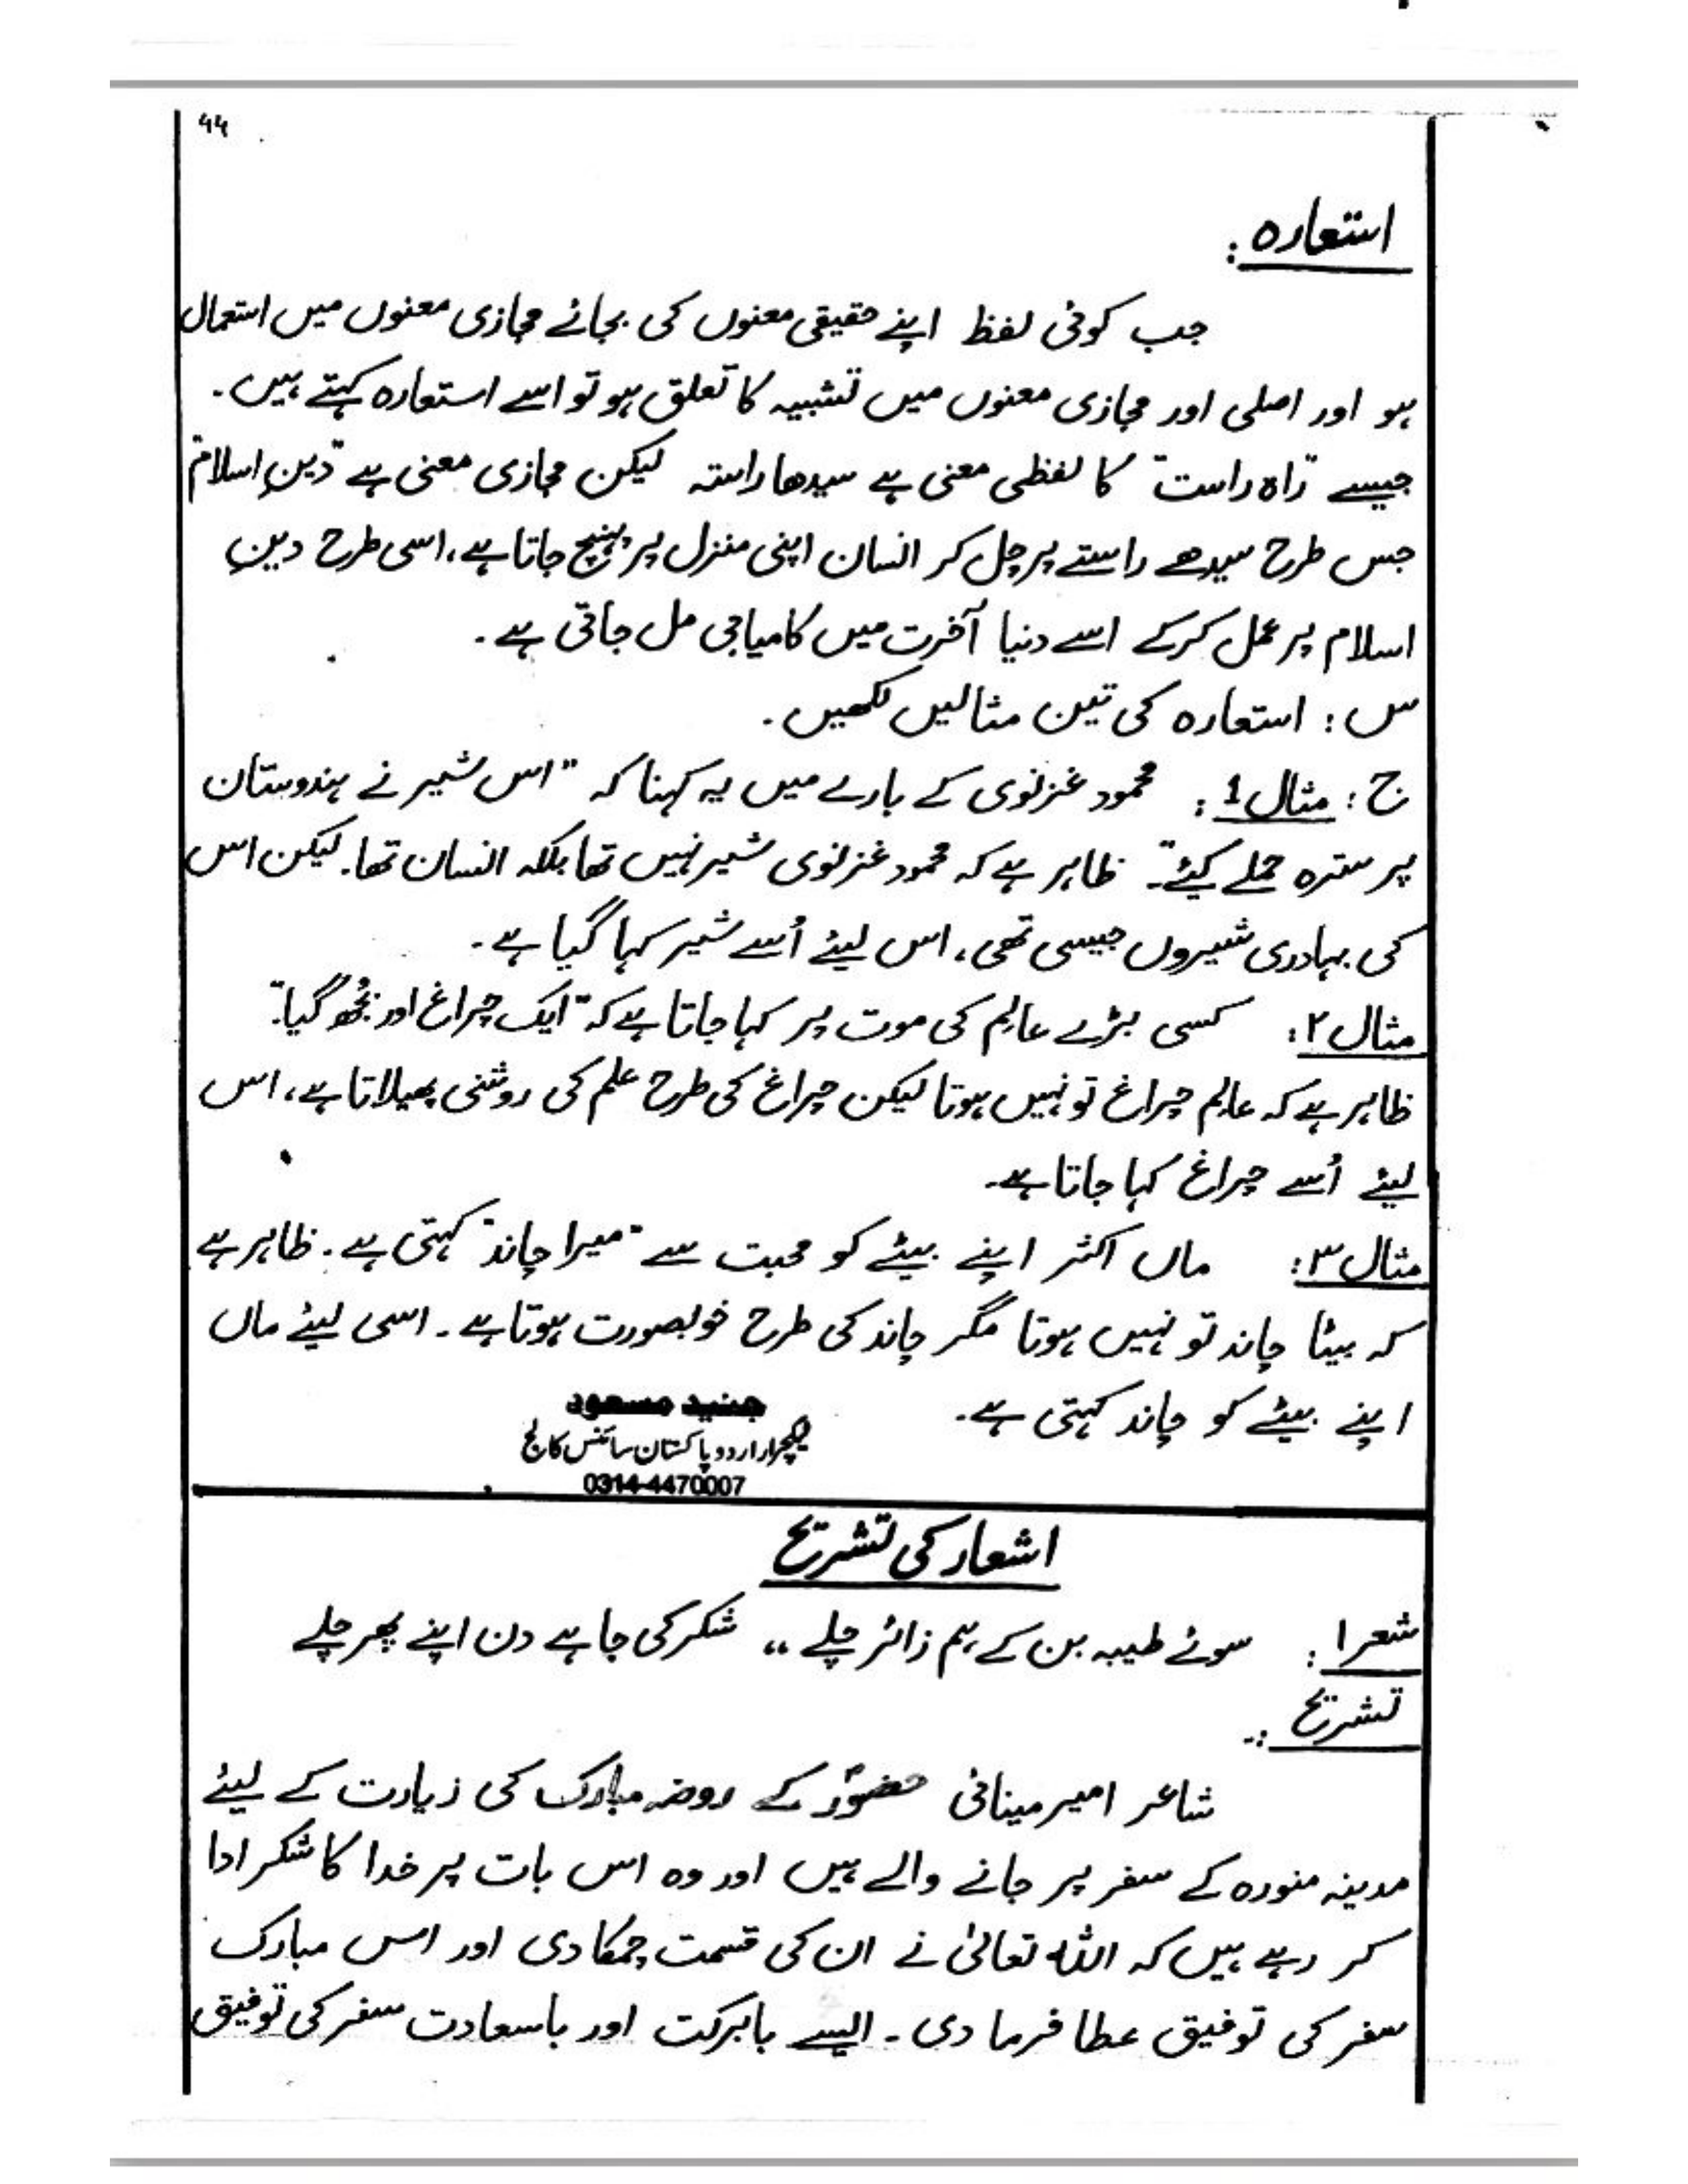 ۴۴
استعارہ:
جب کوئی لفظ اپنے حقیقی معنوں کی بجائے مجازی معنوں میں استعمال
ہو اور اصلی اور مجازی معنوں میں تشبیہ کا تعلق ہو تو اسے استعارہ کہتے ہیں۔
جیسے "راہ راست" کا لفظی معنی ہے سیدھا راستہ لیکن مجازی معنی ہے "دینِ اسلام"
جس طرح سیدھے راستے پر چل کر انسان اپنی منزل پر پہنچ جاتا ہے، اسی طرح دینِ
اسلام پر عمل کرکے اسے دنیا آخرت میں کامیابی مل جاتی ہے۔
س: استعارہ کی تین مثالیں لکھیں۔
ج: مثال 1: محمود غزنوی کے بارے میں یہ کہنا کہ "اس شیر نے ہندوستان
پر سترہ حملے کیئے"۔ ظاہر ہے کہ محمود غزنوی شیر نہیں تھا بلکہ انسان تھا۔ لیکن اس
کی بہادری شیروں جیسی تھی، اس لیئے اُسے شیر کہا گیا ہے۔
مثال ۲: کسی بڑے عالِم کی موت پر کہا جاتا ہے کہ "ایک چراغ اور بُجھ گیا"۔
ظاہر ہے کہ عالِم چراغ تو نہیں ہوتا لیکن چراغ کی طرح علم کی روشنی پھیلاتا ہے، اس
لیئے اُسے چراغ کہا جاتا ہے۔
مثال ۳: ماں اکثر اپنے بیٹے کو محبت سے "میرا چاند" کہتی ہے۔ ظاہر ہے
کہ بیٹا چاند تو نہیں ہوتا مگر چاند کی طرح خوبصورت ہوتا ہے۔ اسی لیئے ماں
اپنے بیٹے کو چاند کہتی ہے۔
جنید مسعود
لیکچرار اردو پاکستان سائنس کالج
0314-4470007
اشعار کی تشریح
شعر ۱: سوئے طیبہ بن کے ہم زائر چلے ،، شکر کی جا ہے دن اپنے پھر چلے
تشریح :۔
شاعر امیر مینائی حضورؐ کے روضہ مبارک کی زیارت کے لیئے
مدینہ منورہ کے سفر پر جانے والے ہیں اور وہ اس بات پر خدا کا شکر ادا
کر رہے ہیں کہ اللہ تعالیٰ نے ان کی قسمت چمکا دی اور اس مبارک
سفر کی توفیق عطا فرما دی۔ ایسے بابرکت اور باسعادت سفر کی توفیق